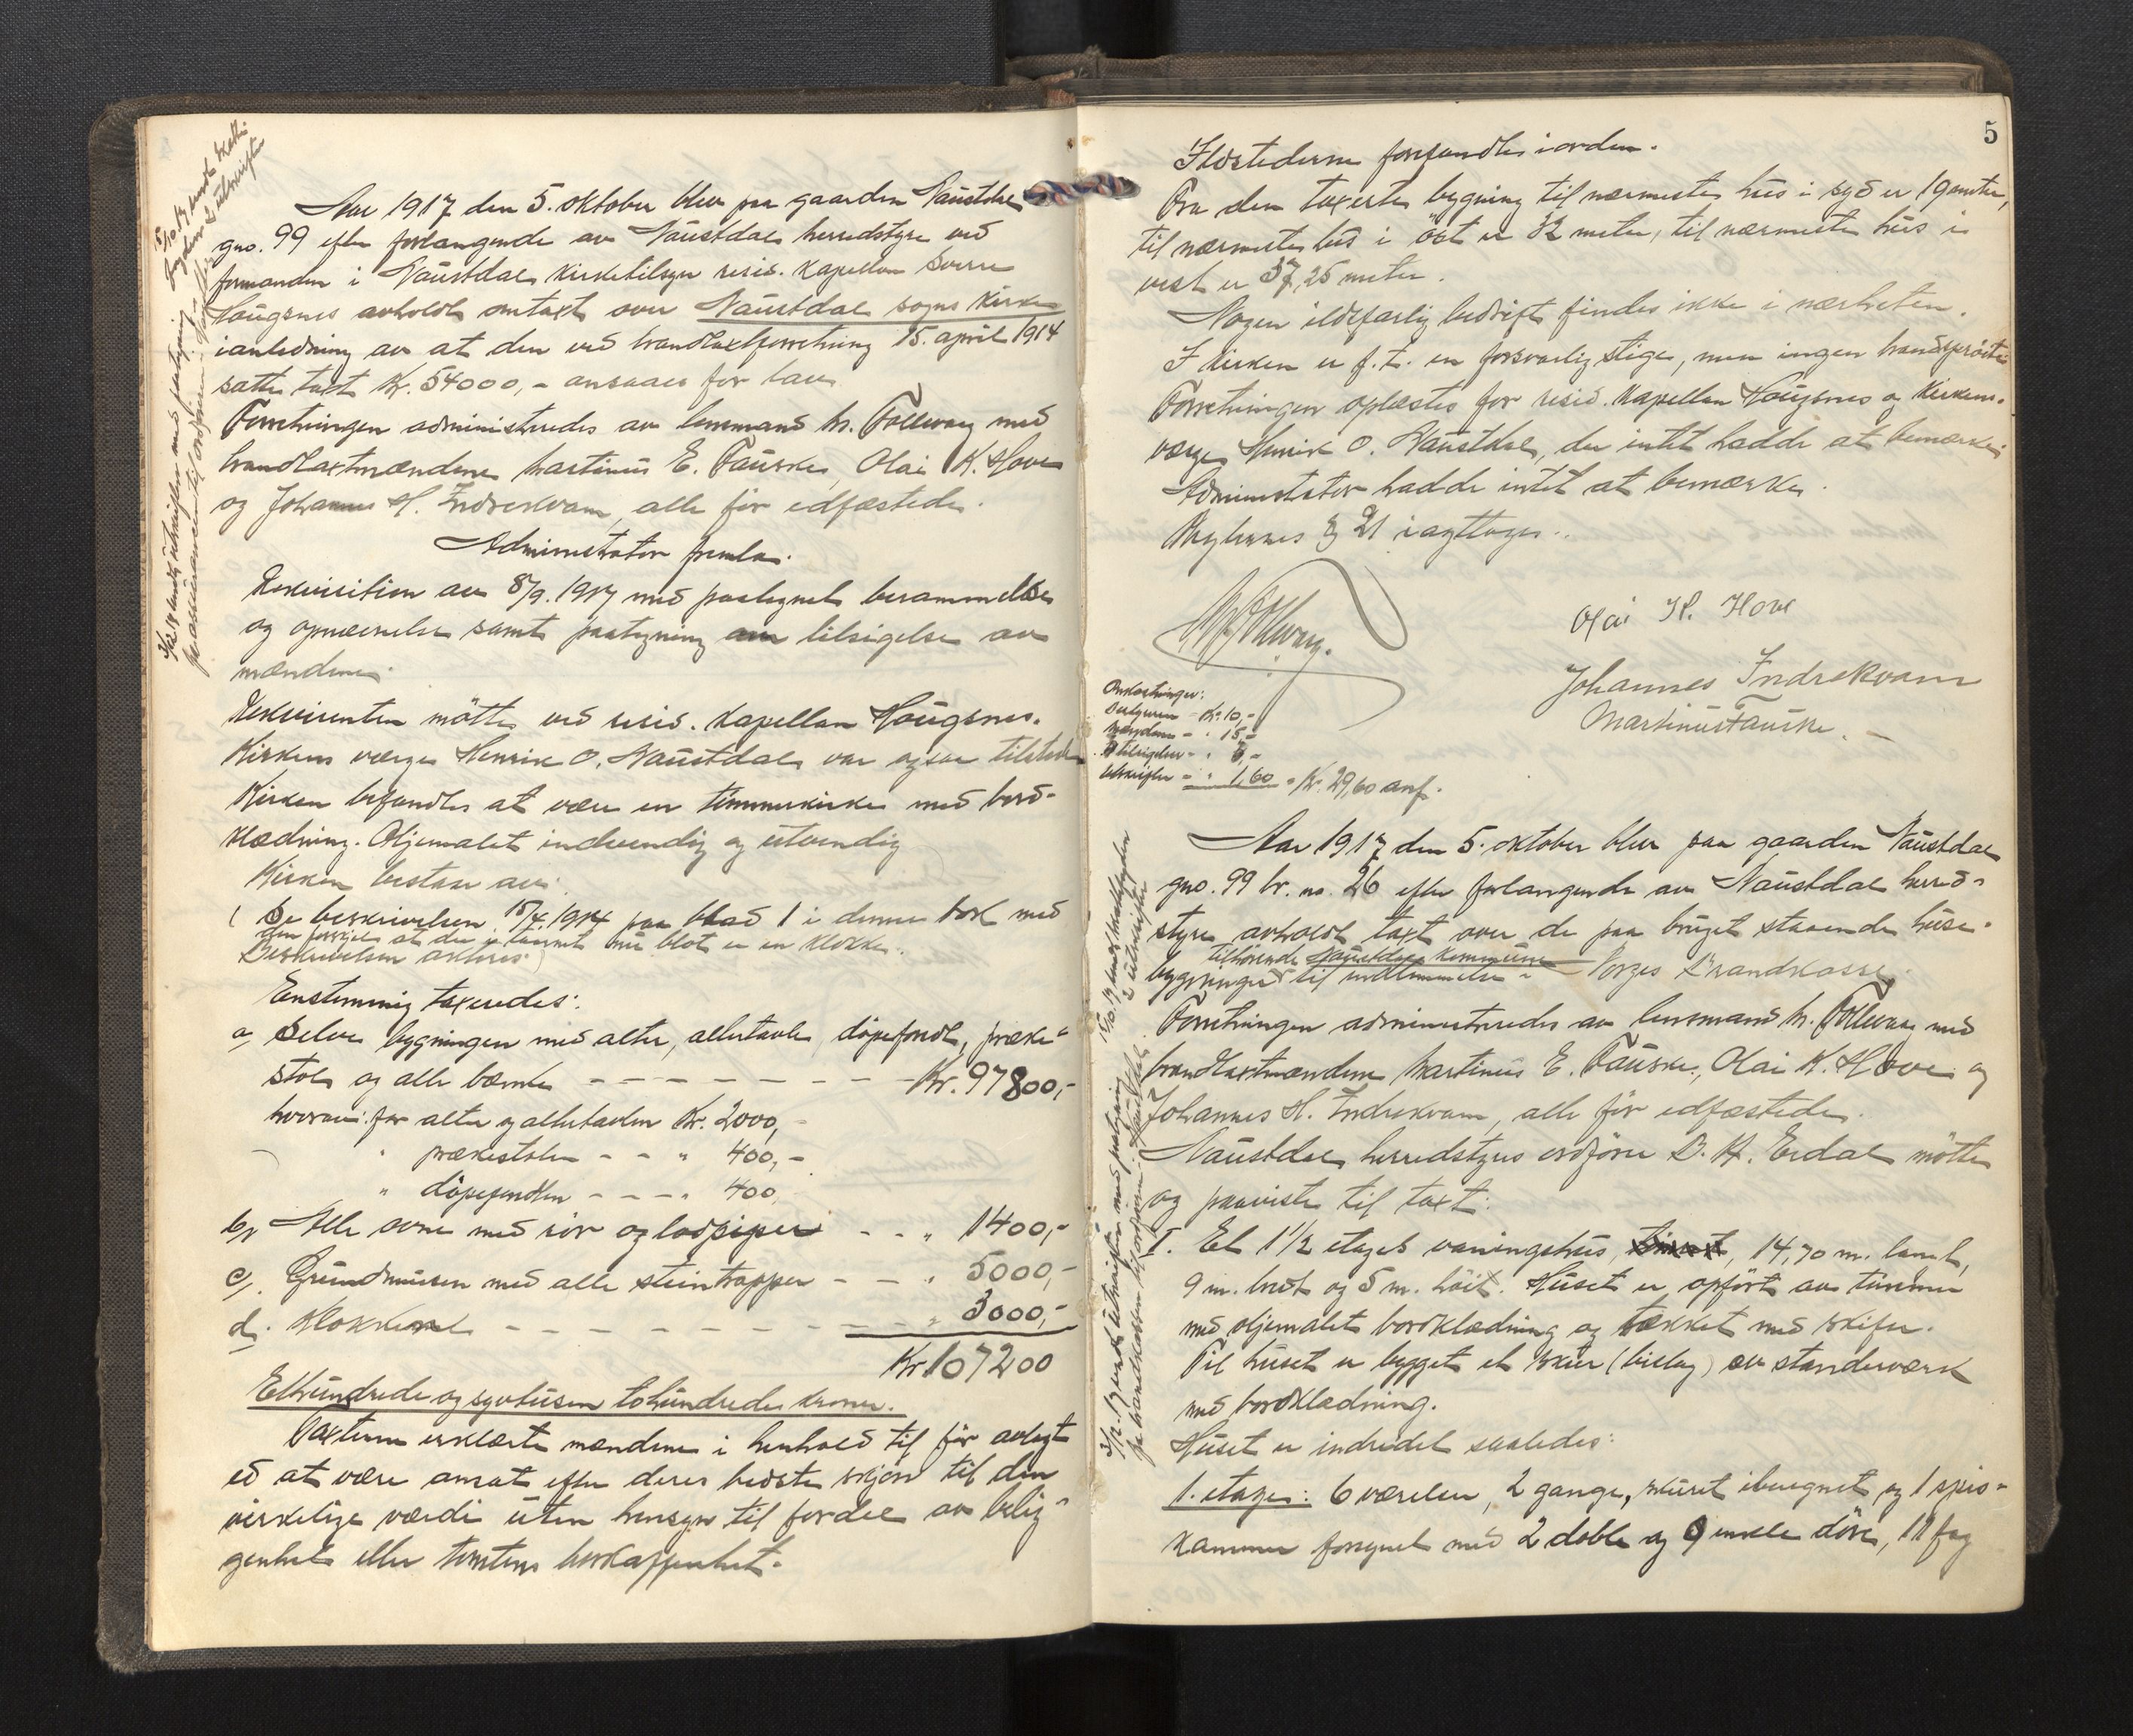 Aar 1917 den 5. oktober blev paa gaarden Naustdal
gno. 99 efter forlangende av Naustdal herredstyre ved
formanden i Naustdal kirketilsyn resid. kapellan Sverre
Hougsnes avholdt omtaxt over Naustdal sogns kirke
i anledning av at den ved brandtaxtforretning 15. april 1914
satte taxt Kr. 54000,- ansaaes for lav.
Forretningen administreredes av lensmand M. Føllevaag med
brandtaxtmændene Martinus E. Fauske, Olai K. Hove
og Johannes H. Indrekvam, alle før edfæstede.
Administrator fremla:
Rekvisition av 8/9. 1917 med paategnet berammelse
og opnævnelse samt paategning om tilsigelse av
mændene.
Rekvirenten møtte ved resid. kapellan Hougsnes.
Kirkens værge Henrik O. Naustdal var ogsaa tilstede
Kirken befandtes at være en tømmerkirke med bord-
klædning. Oljemalet indvendig og utvendig
Kirken bestaar av:
( Se beskrivelsen 15/4 1914 paa blad 1 i denne bok med
den forskjel at der i taarnet nu blot er en klokke.
Beskrivelsen anføres)
Enstemmig taxeredes:
a, Selve bygningen med alter, altertavle, døpefondt, præke-
stol og alle bænke - - - - - - - - Kr. 97800,-
hvorav: for alter og altertavlen Kr. 2000,-
" prækestolen - - " 400,-
" døpefondten - - - " 400,
b, Alle ovne med rør og lodpiper - - " 1400,-
c, Grundmuren med alle steintrapper - - " 5000,-
d. Klokkene - - - - - - - - - " 3000,-
Kr. 107200
Ethundrede og syvtusen tohundrede kroner.
Taxterne erklærte mændene i henhold til før avlagt
ed at være ansat efter deres bedste skjøn til den
virkelige værdi uten hensyn til fordel av belig-
genhet eller tomtens beskaffenhet.
5
Ildstederne forefandtes i orden.
Fra den taxerte bygning til nærmeste hus i syd er 19 meter,
til nærmeste hus i øst er 32 meter, til nærmeste hus i
vest er 37,25 meter.
Nogen ildsfarlig bedrift findes ikke i nærheten.
I kirken er f. t. en forsvarlig stige, men ingen brandsprøite
Forretningen oplæstes for resid. kapellan Hougsnes og kirkens
værge Henrik O. Naustdal, der intet hadde at bemærke.
Administrator hadde intet at bemærke.
Reglernes § 21 iagttoges.
Olai K. Hove
Johannes Indrekvam
Martinus Fauske.
Omkostninger:
Kr. 10,-
" 15,-
tilsigelse - " 3,-
utskrifter - " 1,60 = Kr. 29,60 anf.
Aar 1917 den 5. oktober blev paa gaarden Naustdal
gno. 99 br. no. 26 efter forlangende av Naustdal herred-
styre avholdt taxt over de paa bruget staaende huse-
tilhørende Naustdal kommune
bygninger til indlemmelse i Norges Brandkasse.
Forretningen administreredes av lensmand M. Føllevaag med
brandtaxtmændene Martinus E. Fauske, Olai K. Hove og
Johannes H. Indrekvam, alle før edfæstede.
Naustdal herredstyres ordfører D. A. Erdal møtte
og paaviste til taxt:
I. Et 1 1/2 etages vaaningshus, 14,70 m. langt,
9 m. bredt og 5 m. høit. Huset er opført av tømmer
med oljemalet bordklædning og tækket med skifer.
Til huset er bygget et skur (bislag) av stenderværk
med bordklædning.
Huset er indredet saaledes:
1. etage: 6 værelser, 2 gange, skuret iberegnet, og 1 spis-
kammer forsynet med 2 doble og 9 enkle døre, 11 fag